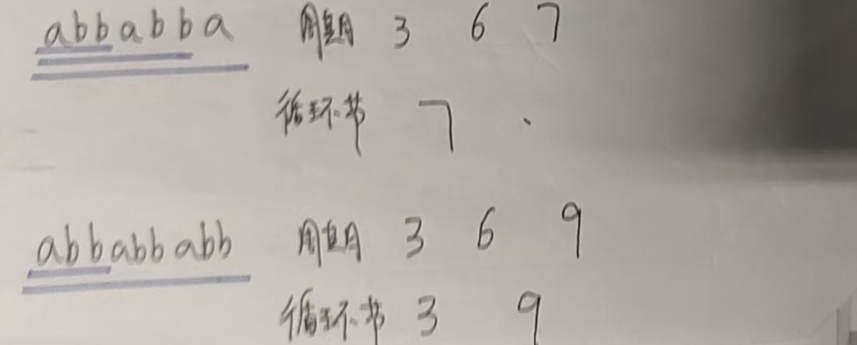 abbabba 周期 3 6 7
循环节 7
abbabbabb 周期 3 6 9
循环节 3 9